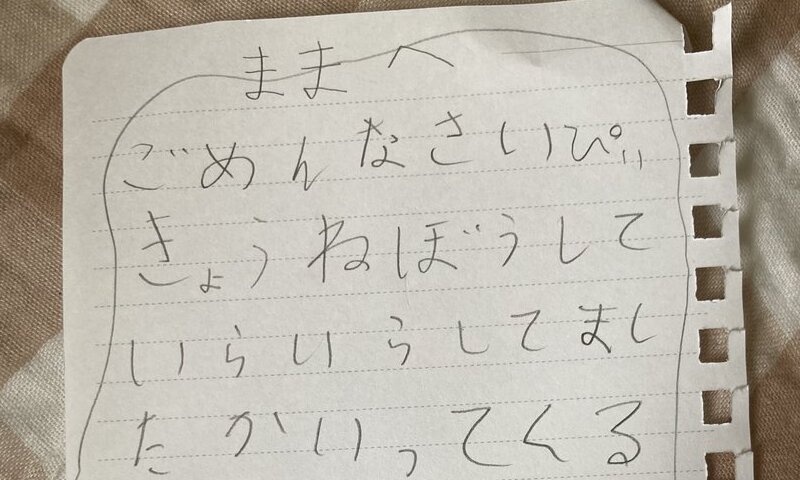 ままへ
ごめんなさいぴ、、
きょうねぼうして
いらいらしてまし
たかいってくる